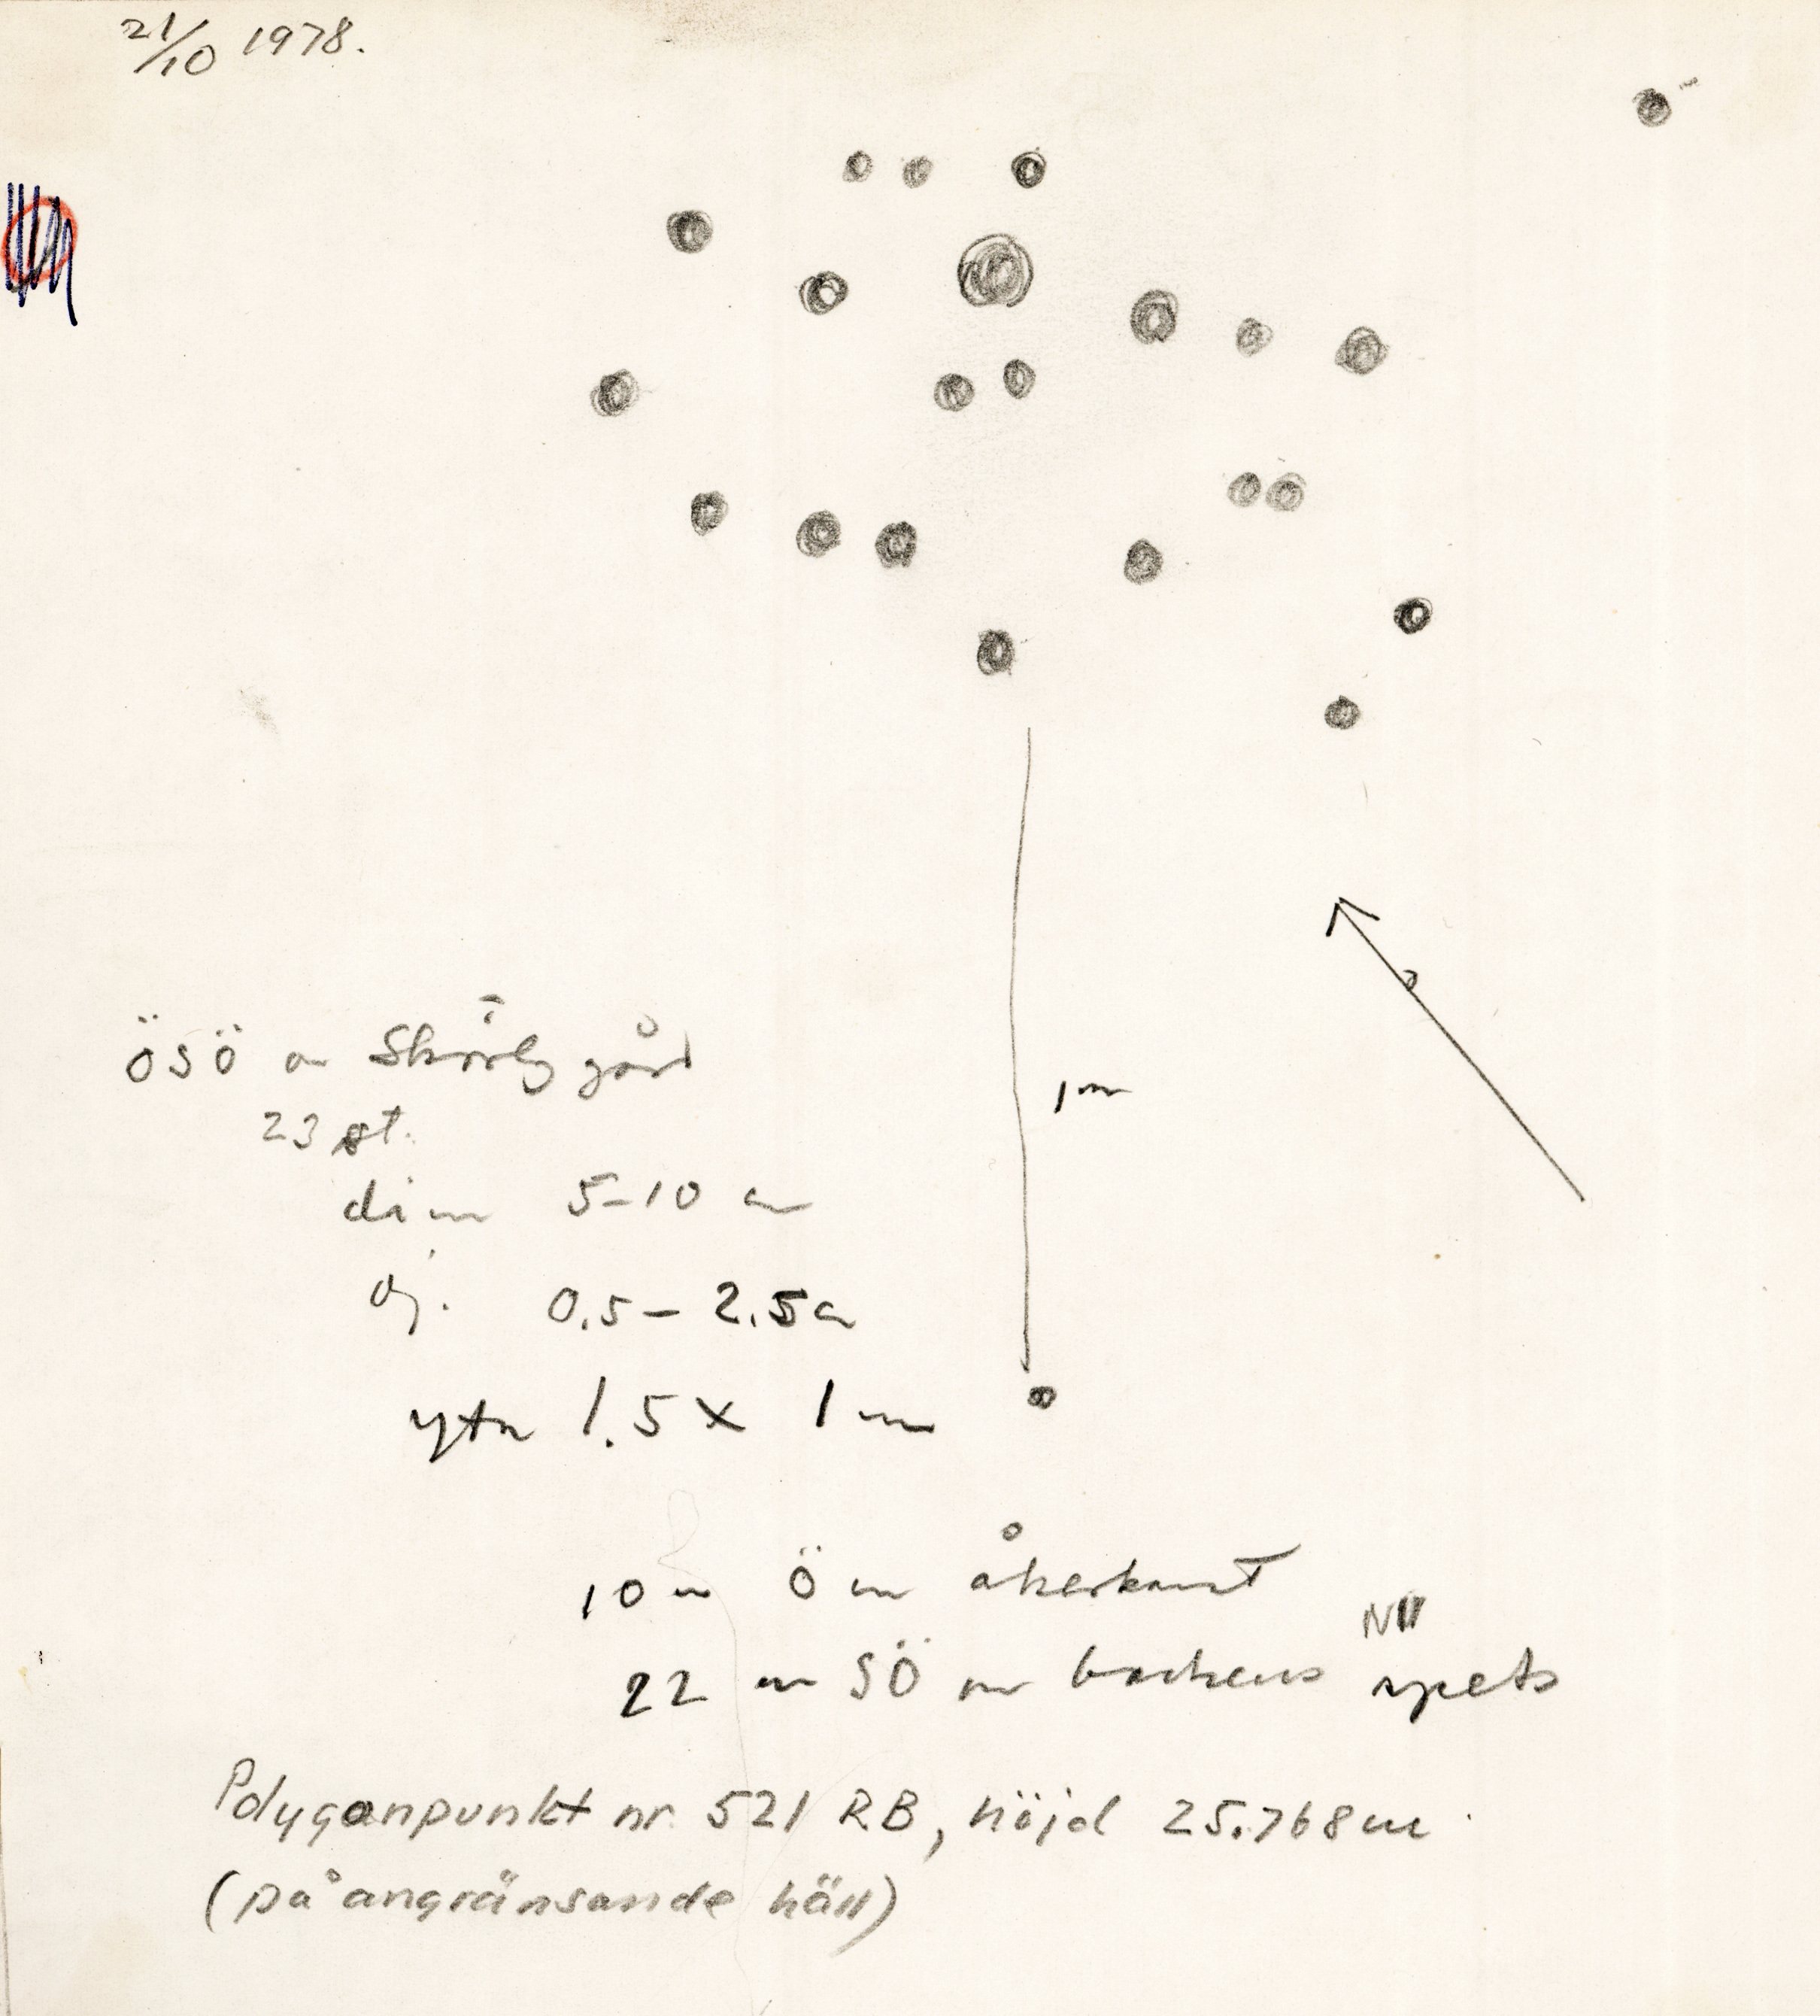 21/10 1978.
1 m
ÖSÖ om Skärby gård
23 st.
diam 5-10 cm
dj. 0.5 - 2.5 cm
yta 1.5 x 1 m
10 m Ö om åkerkant
22 m SÖ om backens spets
Polygonpunkt nr. 521 RB, höjd 25.768 m
(på angränsande häll)